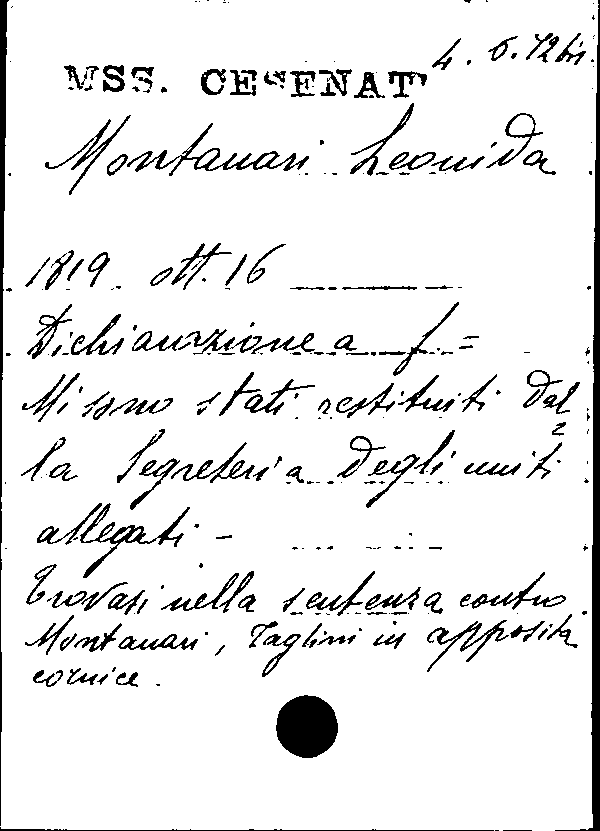 4. 6. 12 bis.
MSS. CESENATI
Montanari Leonida
1819 ott. 16
Dichiarazione a f =
Mi sono stati restituiti dal=
la Segreteria degli uniti
allegati -
Trovasi nella sentenza contro
Montanari, Taglini in apposita
cornice.